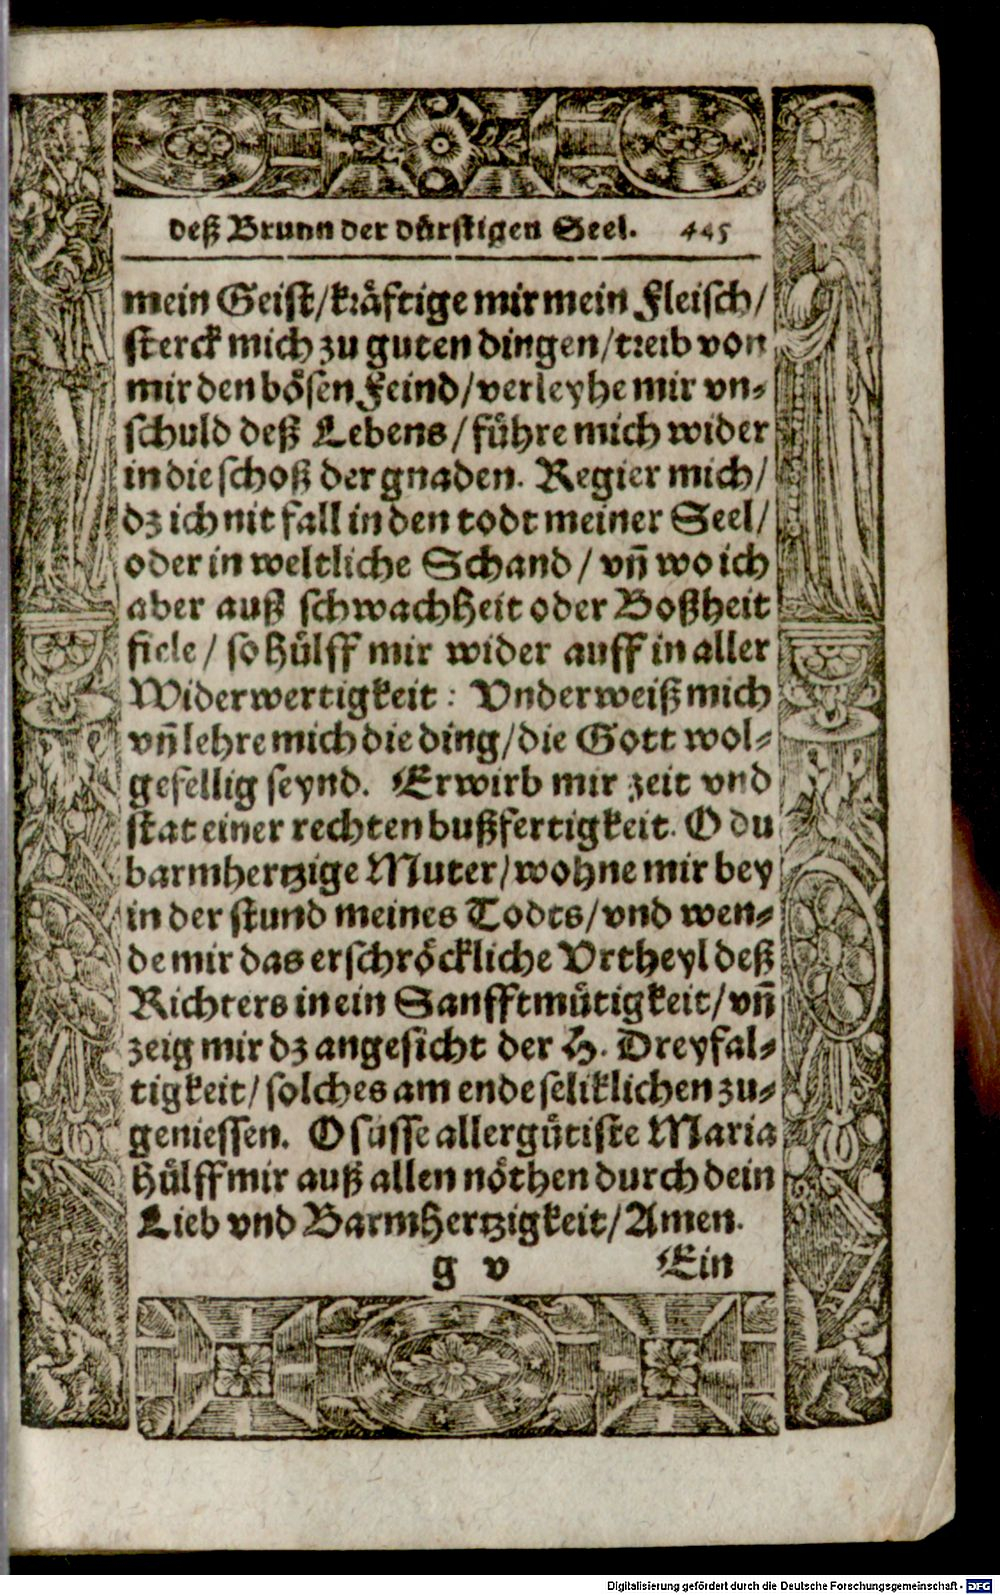 deß Brunn der dürstigen Seel. 445
mein Geist/kräftige mir mein Fleisch/
sterck mich zu guten dingen/treib von
mir den bösen Feind/verleyhe mir vn-
schuld deß Lebens/führe mich wider
in die schoß der gnaden. Regier mich/
dz ich nit fall in den todt meiner Seel/
oder in weltliche Schand/vn̄ wo ich
aber auß schwachheit oder Boßheit
fiele/so hülff mir wider auff in aller
Widerwertigkeit: Vnderweiß mich
vn̄ lehre mich die ding/die Gott wol-
gefellig seynd. Erwirb mir zeit vnd
stat einer rechten bußfertigkeit. O du
barmhertzige Muter/wohne mir bey
in der stund meines Todts/vnd wen-
de mir das erschröckliche Vrtheyl deß
Richters in ein Sanfftmütigkeit/vn̄
zeig mir dz angesicht der H. Dreyfal-
tigkeit/solches am ende seliklichen zu-
geniessen. O süsse allergütiste Maria
hülff mir auß allen nöthen durch dein
Lieb vnd Barmhertzigkeit/Amen.
g v Ein
Digitalisierung gefördert durch die Deutsche Forschungsgemeinschaft - DFG